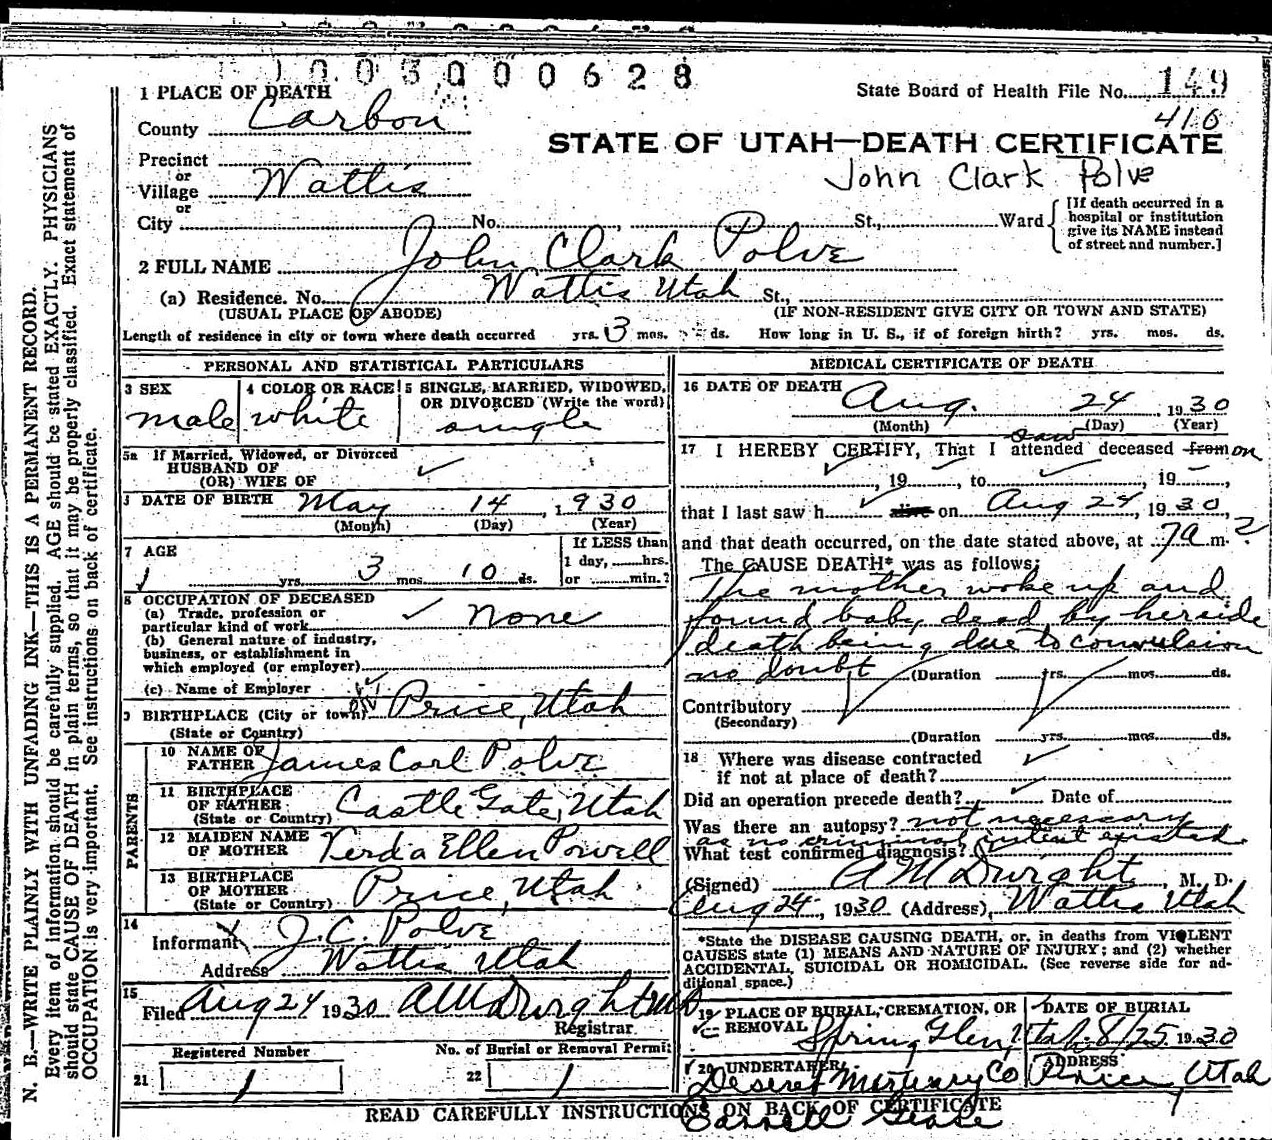 1003000628
1 PLACE OF DEATH
State Board of Health File No. 149
County Carbon
410
STATE OF UTAH—DEATH CERTIFICATE
Precinct
or
Village Wattis
John Clark Polve
or
City No. , St., Ward
[If death occurred in a
hospital or institution
give its NAME instead
of street and number.]
2 FULL NAME John Clark Polve
(a) Residence. No. Wattis Utah St.,
(USUAL PLACE OF ABODE) (IF NON-RESIDENT GIVE CITY OR TOWN AND STATE)
Length of residence in city or town where death occurred yrs. 3 mos. ds. How long in U. S., if of foreign birth? yrs. mos. ds.
PERSONAL AND STATISTICAL PARTICULARS
3 SEX
male
4 COLOR OR RACE
white
5 SINGLE, MARRIED, WIDOWED,
OR DIVORCED (Write the word)
single
5a If Married, Widowed, or Divorced
HUSBAND OF
(OR) WIFE OF
DATE OF BIRTH May 14, 1930
(Month) (Day) (Year)
7 AGE
yrs. 3 mos. 10 ds.
If LESS than
1 day, hrs.
or min.?
8 OCCUPATION OF DECEASED
(a) Trade, profession or
particular kind of work none
(b) General nature of industry,
business, or establishment in
which employed (or employer)
(c) Name of Employer
9 BIRTHPLACE (City or town) Price, Utah
(State or Country)
PARENTS
10 NAME OF
FATHER James Carl Polve
11 BIRTHPLACE
OF FATHER Castle Gate, Utah
(State or Country)
12 MAIDEN NAME
OF MOTHER Verda Ellen Powell
13 BIRTHPLACE
OF MOTHER Price, Utah
(State or Country)
14
Informant J.C. Polve
Address Wattis Utah
15
Filed Aug 24 1930 AM Dwight MD
Registrar
Registered Number
21 1
No. of Burial or Removal Permit
22 1
MEDICAL CERTIFICATE OF DEATH
16 DATE OF DEATH
Aug. 24, 1930
(Month) (Day) (Year)
saw
17 I HEREBY CERTIFY, That I attended deceased from on
, 19 , to , 19 ,
that I last saw h alive on Aug 24, 1930,
and that death occurred, on the date stated above, at 7 a m. ?
The CAUSE DEATH* was as follows:
The mother woke up and
found baby dead by herside
death being due to convulsion
no doubt (Duration yrs. mos. ds.
Contributory
(Secondary)
(Duration yrs. mos. ds.
18 Where was disease contracted
if not at place of death?
Did an operation precede death? Date of
Was there an autopsy? not necessary
as no criminal intent existed
What test confirmed diagnosis?
(Signed) AM Dwight, M. D.
Aug 24, 1930 (Address) Wattis Utah
*State the DISEASE CAUSING DEATH, or, in deaths from VIOLENT
CAUSES state (1) MEANS AND NATURE OF INJURY; and (2) whether
ACCIDENTAL, SUICIDAL OR HOMICIDAL. (See reverse side for ad-
ditional space.)
19 PLACE OF BURIAL, CREMATION, OR
REMOVAL Spring Glen, Utah
DATE OF BURIAL
8/25 1930
20 UNDERTAKER
Deseret Mortuary Co
ADDRESS
Price, Utah
READ CAREFULLY INSTRUCTIONS ON BACK OF CERTIFICATE
N. B.—WRITE PLAINLY WITH UNFADING INK—THIS IS A PERMANENT RECORD.
Every item of information should be carefully supplied. AGE should be stated EXACTLY. PHYSICIANS
should state CAUSE OF DEATH in plain terms, so that it may be properly classified. Exact statement of
OCCUPATION is very important. See instructions on back of certificate.